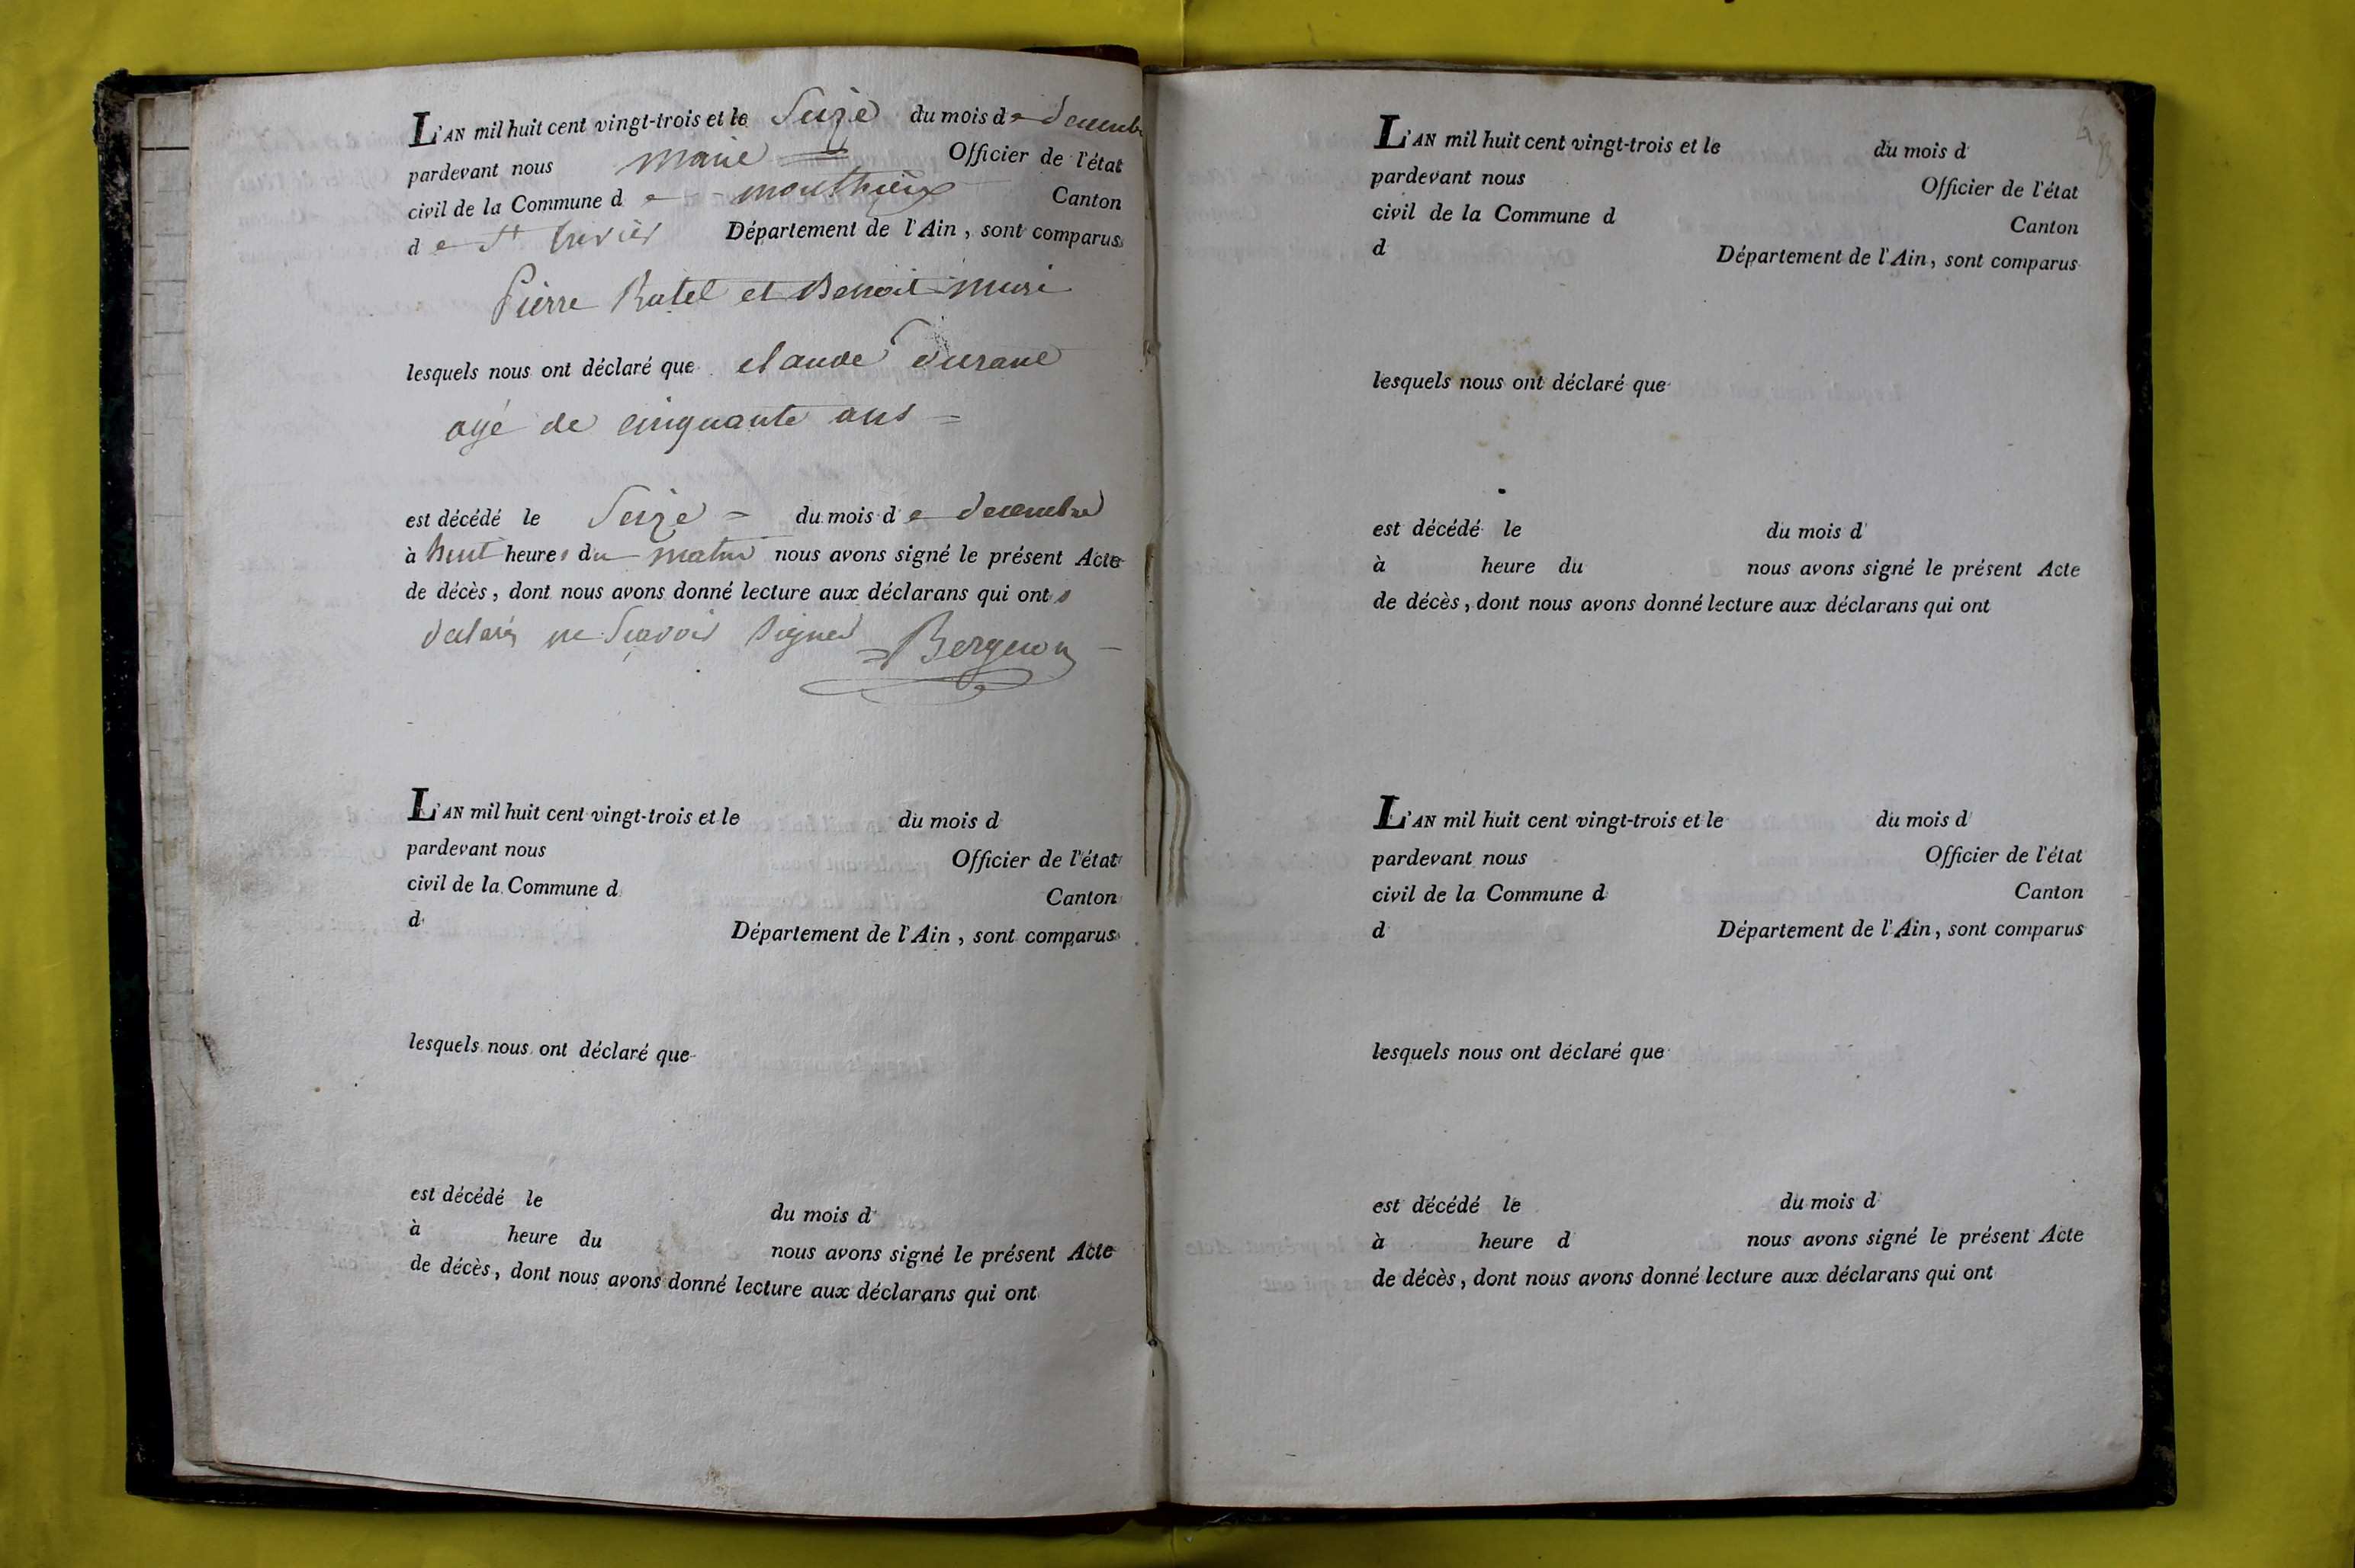 L'AN mil huit cent vingt-trois et le Seize du mois de decembre
pardevant nous maire Officier de l'état
civil de la Commune de monthieux Canton
de St trivier Département de l'Ain, sont comparus
Pierre Ratel et Benoit
lesquels nous ont déclaré que claude durand
agé de cinquante ans =
est décédé le Seize = du mois de decembre
à huit heures du matin nous avons signé le présent Acte
de décès, dont nous avons donné lecture aux déclarans qui ont
declarés ne Savoir Signer Bergeron
L'AN mil huit cent vingt-trois et le du mois d
pardevant nous Officier de l'état
civil de la Commune d Canton
d Département de l'Ain, sont comparus
lesquels nous ont déclaré que
est décédé le du mois d
à heure du nous avons signé le présent Acte
de décès, dont nous avons donné lecture aux déclarans qui ont
L'AN mil huit cent vingt-trois et le du mois d
pardevant nous Officier de l'état
civil de la Commune d Canton
d Département de l'Ain, sont comparus
lesquels nous ont déclaré que
est décédé le du mois d
à heure du nous avons signé le présent Acte
de décès, dont nous avons donné lecture aux déclarans qui ont
L'AN mil huit cent vingt-trois et le du mois d
pardevant nous Officier de l'état
civil de la Commune d Canton
d Département de l'Ain, sont comparus
lesquels nous ont déclaré que
est décédé le du mois d
à heure d nous avons signé le présent Acte
de décès, dont nous avons donné lecture aux déclarans qui ont